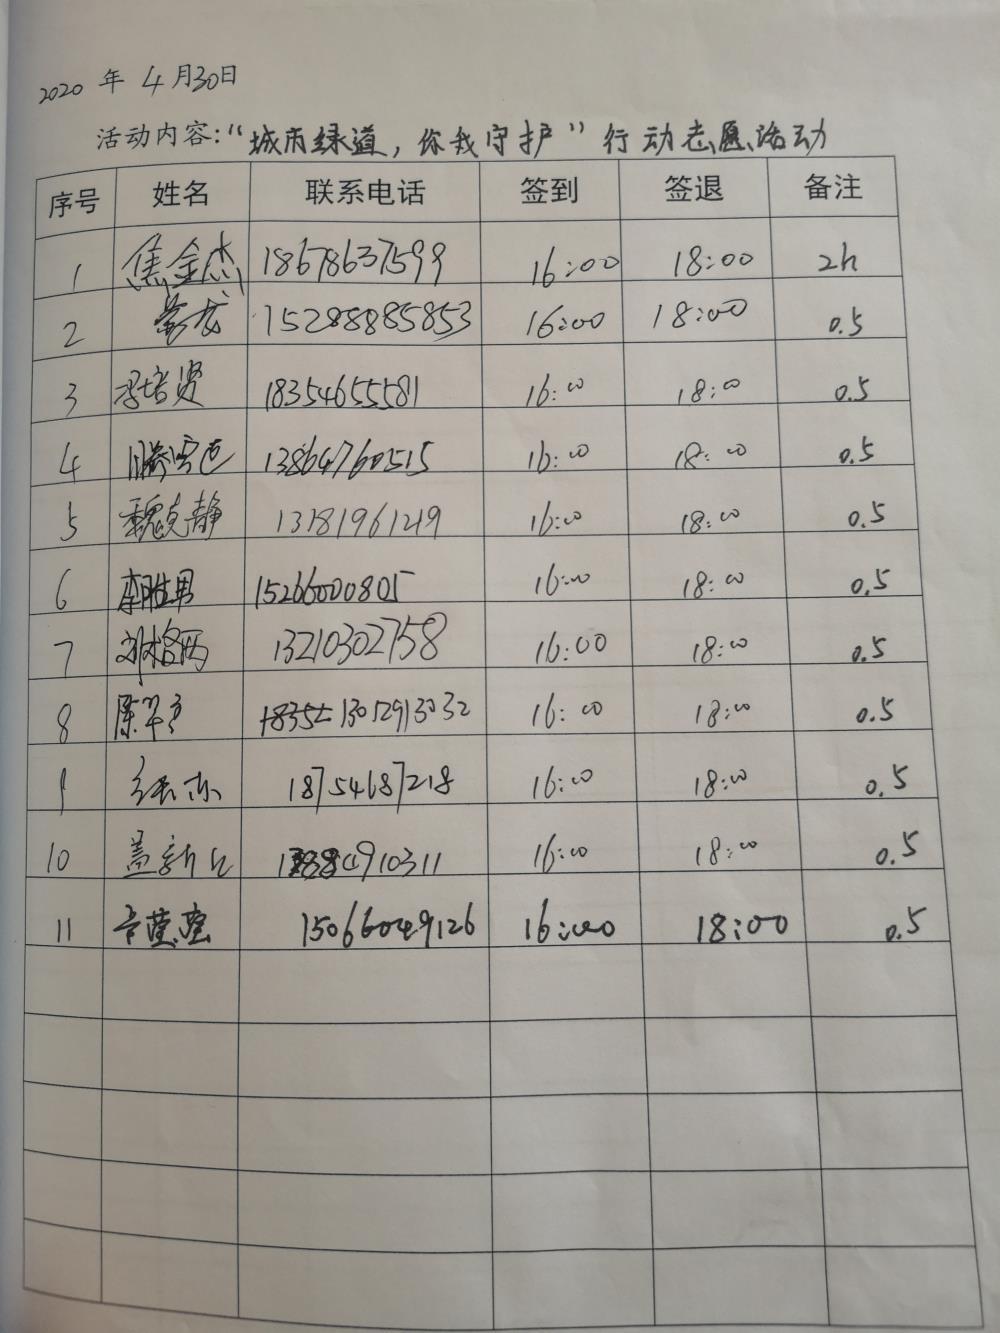 2020 年 4月30日
活动内容:“城市绿道,你我守护”行动志愿活动
序号 姓名 联系电话 签到 签退 备注
1 焦金杰 18678637599 16:00 18:00 2h
2 15288885853 16:00 18:00 0.5
3 冯培贤 18354655581 16:00 18:00 0.5
4 13864760515 16:00 18:00 0.5
5 魏克静 13181961219 16:00 18:00 0.5
6 李胜男 15266000805 16:00 18:00 0.5
7 13210302758 16:00 18:00 0.5
8 16:00 18:00 0.5
9 18754687218 16:00 18:00 0.5
10 16:00 18:00 0.5
11 15066049126 16:00 18:00 0.5